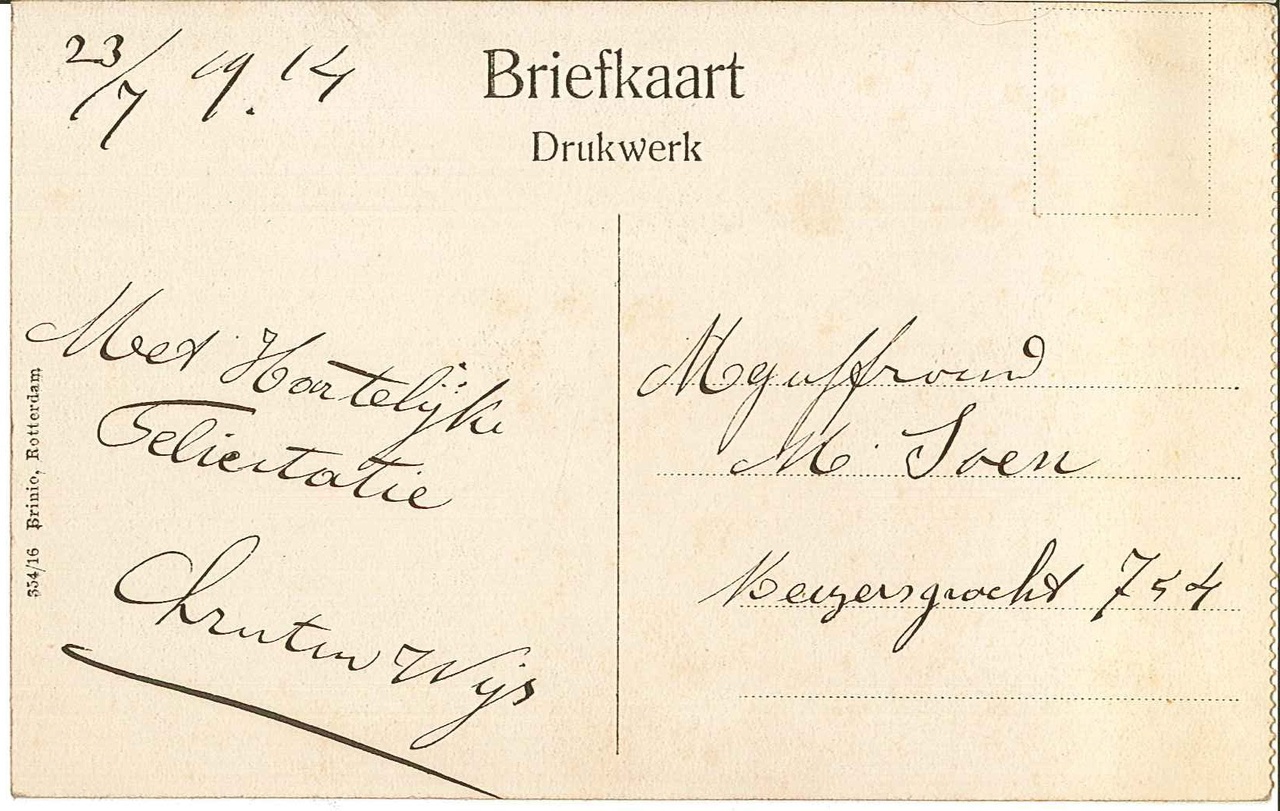 23/7 19.14
Briefkaart
Drukwerk
Met Hartelijke
Felicitatie
Wijs
Mejuffrouw
M. Soen
Keizersgracht 754
354/16 Brinio, Rotterdam